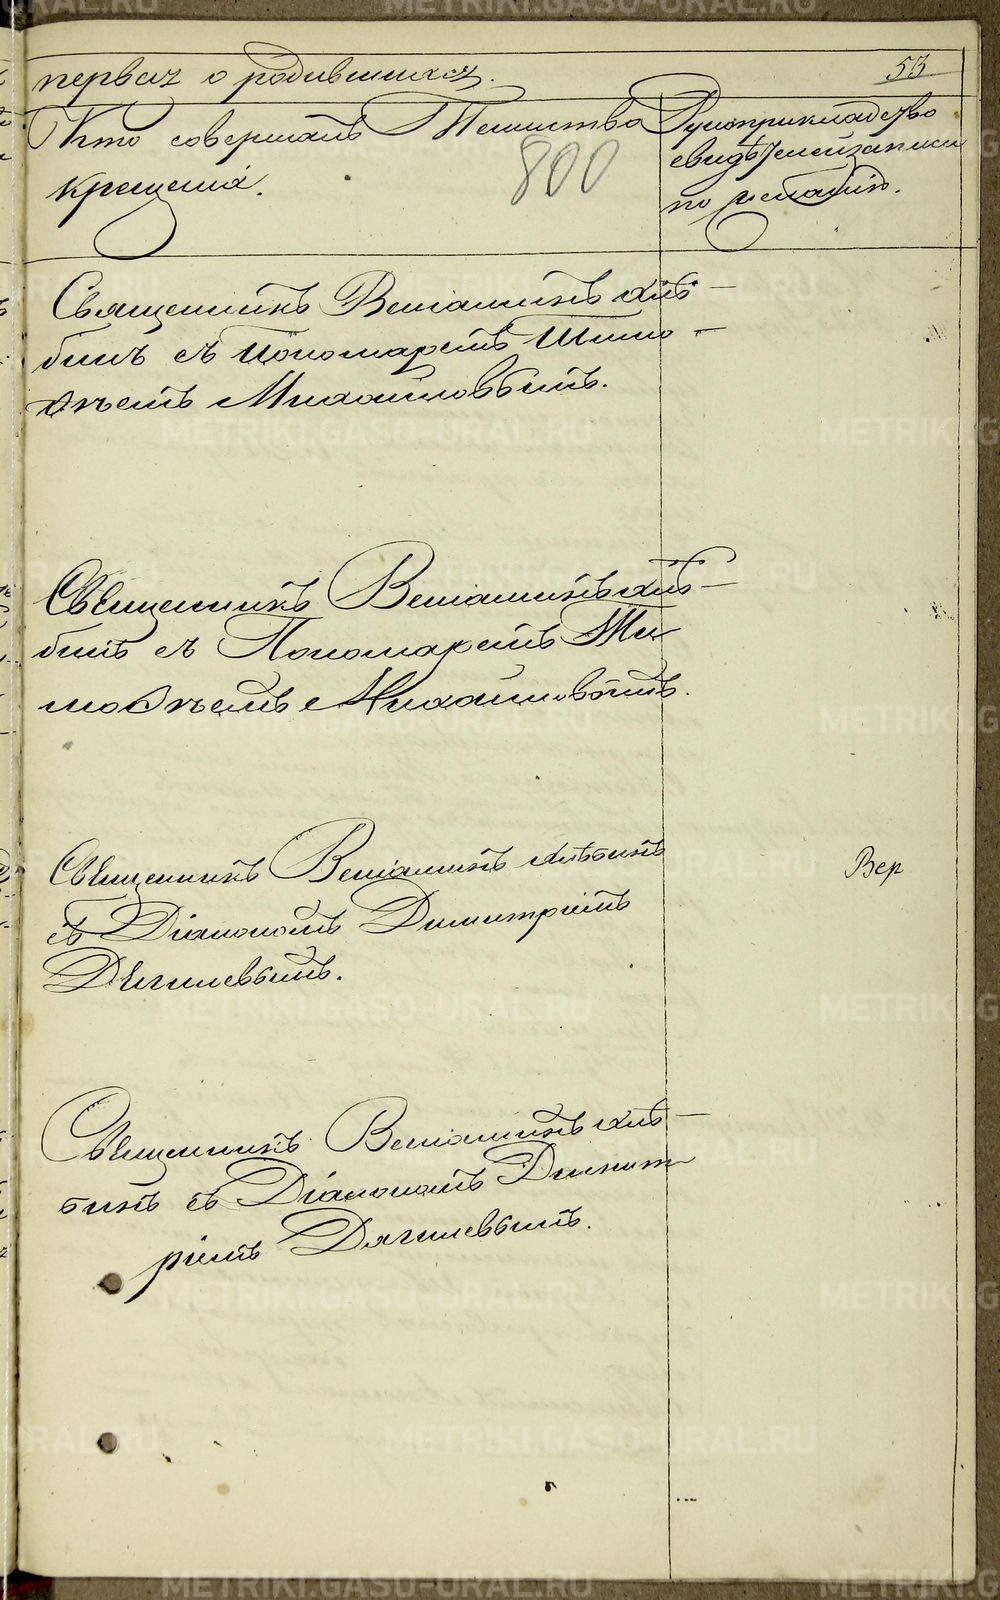 первая о родившихся.
53
Кто совершалъ Таинство
крещенія.
800
Рукоприкладство
свидѣтелей записи
по желанію.
Священникъ Веніаминъ Алѣ-
бинъ съ Пономаремъ Тимо-
ѳѣемъ Михайловымъ.
Священникъ Веніаминъ Алѣ-
бинъ съ Пономаремъ Ти
моѳѣемъ Михайловымъ.
Священникъ Веніаминъ Алѣбинъ
съ Діакономъ Димитріемъ
Дягилевымъ.
Вер
Священникъ Веніаминъ Алѣ-
бинъ съ Діакономъ Димит
ріемъ Дягилевымъ.
METRIKI.GASO-URAL.RU